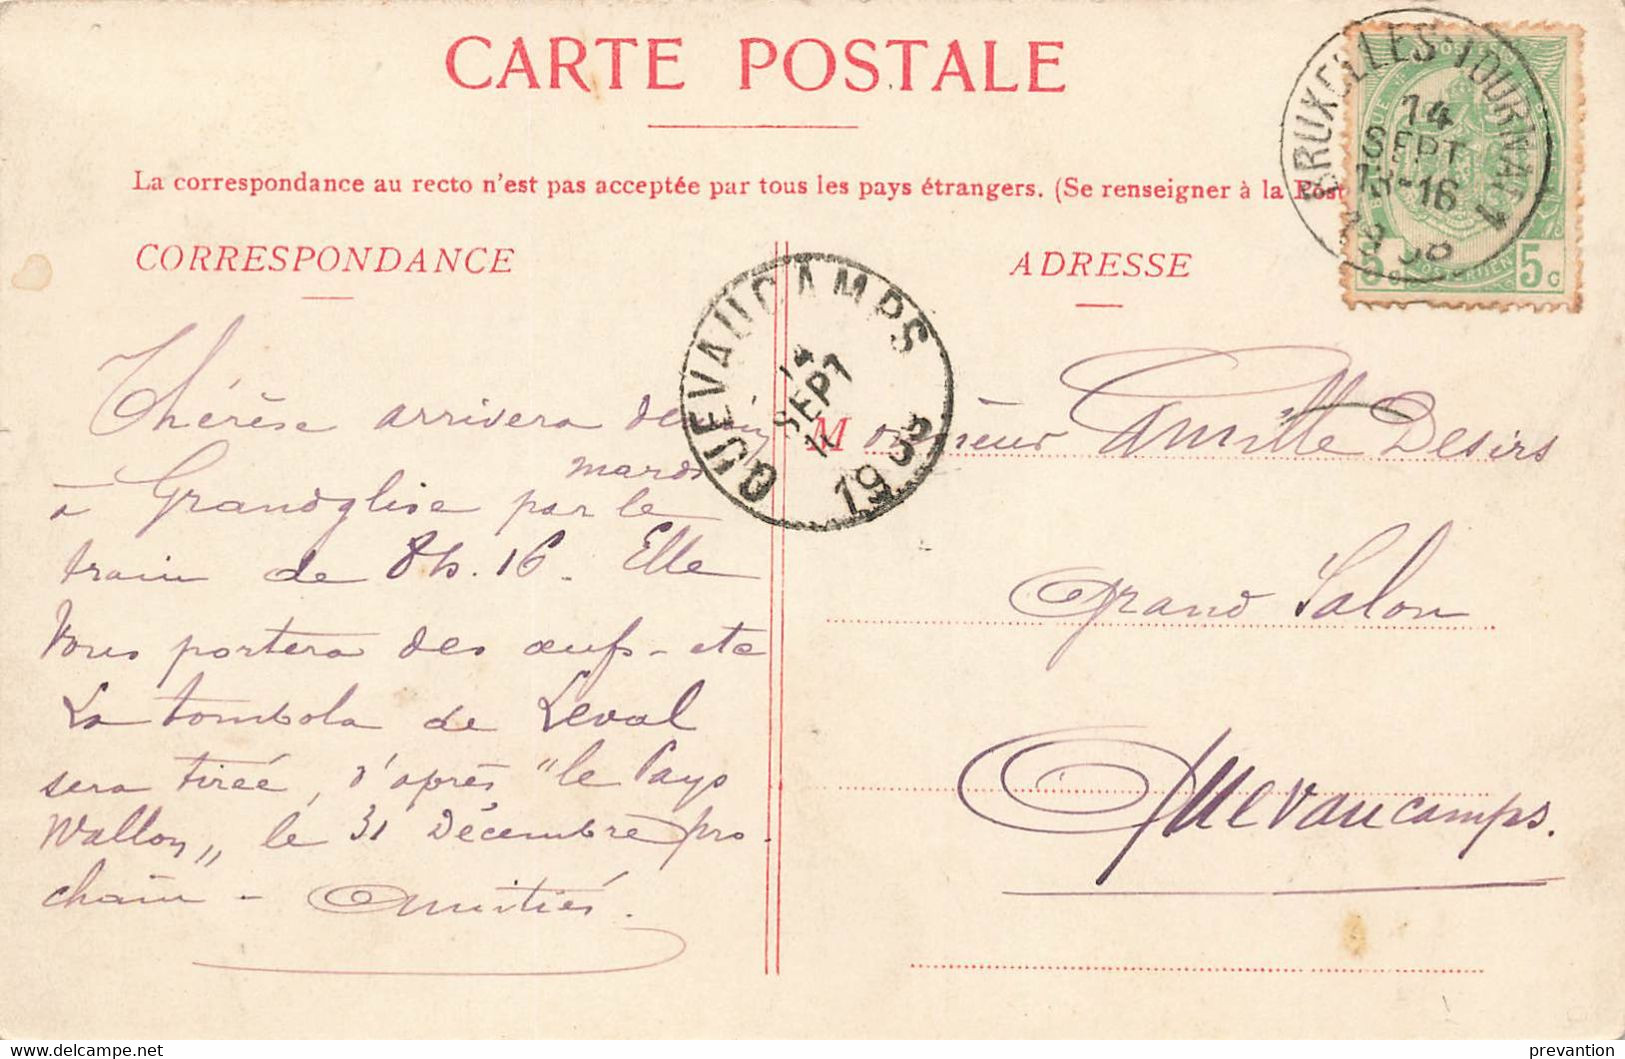 CARTE POSTALE
La correspondance au recto n'est pas acceptée par tous les pays étrangers. (Se renseigner à la Post
CORRESPONDANCE
ADRESSE
BRUXELLES-TOURNAI 1
14
SEPT
-16
5 5c
QUEVAUCAMPS
14
SEPT
11
19
Thérèse arrivera demain
mardi
à Grandglise par le
train de 8h.16. Elle
vous portera des œufs - etc
La tombola de Leval
sera tirée, d'après "le Pays
Wallon", le 31 Décembre pro-
chain - Amitiés.
Monsieur Camille Desirs
Grand Salon
Quevaucamps.
delcampe.net
prevantion